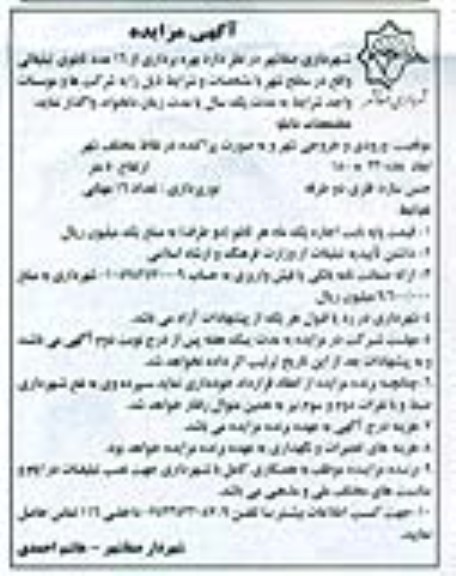 آگهی مزایده
شهرداری صفاشهر در نظر دارد بهره برداری از ۱۶ عدد تابلوی تبلیغاتی
واقع در سطح شهر با مشخصات و شرایط ذیل را به شرکت ها و موسسات
واجد شرایط به مدت یک سال واگذار نماید.
مشخصات تابلو
موقعیت: ورودی و خروجی شهر و به صورت پراکنده در نقاط مختلف شهر
ارتفاع
جنس سازه: فلزی دو طرفه نورپردازی: تعداد ۱۶
شرایط
۱- قیمت پایه بابت اجاره یک ماه هر تابلو (دو طرفه) به مبلغ یک میلیون ریال
۲- داشتن تأییدیه تبلیغات از وزارت فرهنگ و ارشاد اسلامی
۳- ارائه ضمانت نامه بانکی یا فیش واریزی به حساب شهرداری به مبلغ
میلیون ریال
۴- شهرداری در رد یا قبول هر یک از پیشنهادات آزاد می باشد.
۵- مهلت شرکت در مزایده به مدت یک هفته پس از درج نوبت دوم آگهی می باشد
و به پیشنهادات بعد از این تاریخ ترتیب اثر داده نخواهد شد.
۶- چنانچه برنده مزایده از انعقاد قرارداد خودداری نماید سپرده وی به نفع شهرداری
ضبط و با نفرات دوم و سوم نیز به همین منوال رفتار خواهد شد.
۷- هزینه درج آگهی به عهده برنده مزایده می باشد.
۸- هزینه های تعمیرات و نگهداری به عهده برنده مزایده خواهد بود.
۹- برنده مزایده موظف به همکاری کامل با شهرداری جهت نصب تبلیغات در ایام و
مناسبت های مختلف ملی و مذهبی می باشد.
۱۰- جهت کسب اطلاعات بیشتر با تلفن داخلی ۱۱۶ تماس حاصل
نمایید.
شهردار صفاشهر - حاتم احمدی